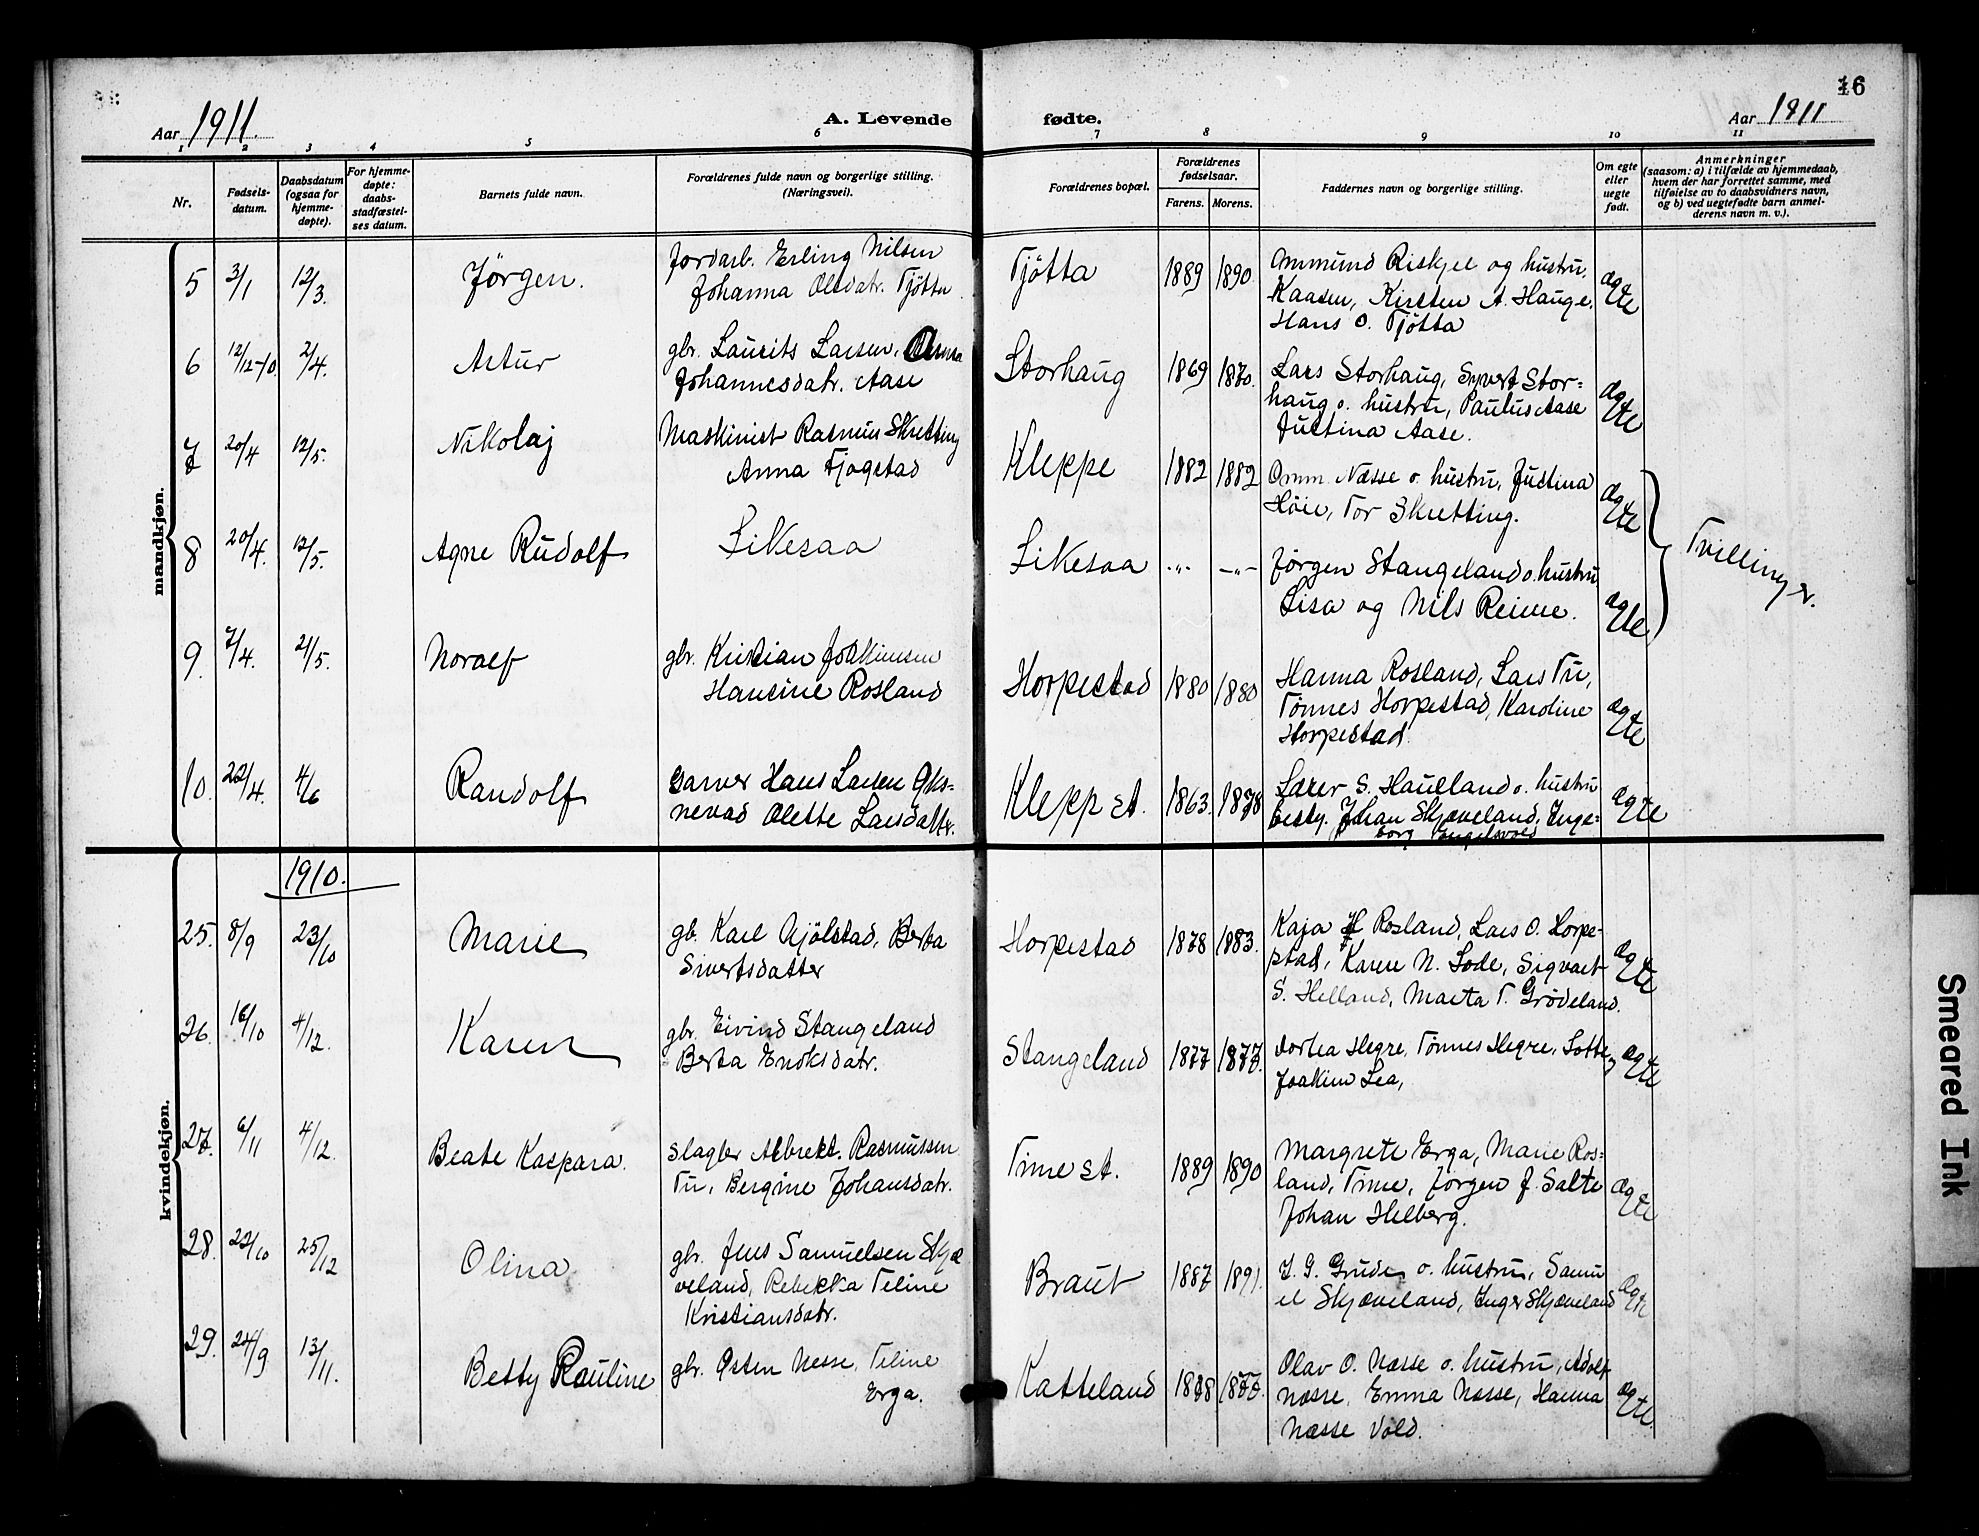 46
Aar 1911.
A. Levende fødte.
Aar 1911
1 2 3 4 5 6 7 8 9 10 11
Nr.
Fødsels-
datum.
Daabsdatum
(ogsaa for
hjemme-
døpte).
For hjemme-
døpte:
daabs-
stadfæstel-
ses datum.
Barnets fulde navn.
Forældrenes fulde navn og borgerlige stilling.
(Næringsvei).
Forældrenes bopæl.
Forældrenes
fødselsaar.
Farens. Morens.
Faddernes navn og borgerlige stilling.
Om egte
eller
uegte
født.
Anmerkninger
(saasom: a) i tilfælde av hjemmedaab,
hvem der har forrettet samme, med
tilføielse av to daabsvidners navn,
og b) ved uegtefødte barn anmel-
derens navn m. v.).
mandkjøn.
5 3/1 12/3. Jørgen.
Jordarb. Erling Nilsen
Johanna Olsdatr. Tjøtta
Tjøtta 1889 1890
Ommund Riskjel og hustru,
Kaasen, Kirsten A. Hauge,
Hans O. Tjøtta
ægte
6 12/12-10. 2/4. Artur
gbr. Laurits Larsen, Anna
Johannesdatr. Aase
Storhaug 1869 1870.
Lars Storhaug, Syvert Stor=
haug o. hustru, Paulus Aase
Justina Aase.
ægte
7 20/4 12/5. Nikolaj
Maskinist Rasmus Skretting
Anna Tjøgstad
Kleppe 1882 1882
Omm. Næsse o. hustru, Justina
Høie, Tor Skretting.
ægte
8 20/4. 12/5. Agne Rudolf
Likesaa
Likesaa -"- -"-
Jørgen Stangeland o. hustru
Lisa og Nils Reime.
ægte
Tvillinger.
9. 7/4. 21/5. Noralf
gbr. Kristian Joakimsen
Hansine Rosland
Horpestad 1880 1880
Hanna Rosland, Lars Tu,
Tønnes Horpestad, Karoline
Horpestad
ægte
10. 22/4. 4/6 Randolf
Garver Hans Larsen Øks=
nevad Olette Larsdattr.
Klepp st. 1863. 1878
Lærer S. Haulland o. hustru
besty. Johan Skjæveland, Inge=
borg Engelsvold
ægte
kvindekjøn.
1910.
25. 8/9 23/10 Marie
gb. Karl Njølstad, Berta
Sivertsdatter
Horpestad 1878 1883.
Kaja H Rosland, Lars O. Horpe-
stad, Karen N. Lode, Sigvart
S. Helland, Marta T. Grødeland.
ægte
26. 16/10 4/12. Karen
gbr. Eivind Stangeland
Berta Enoksdatr.
Stangeland 1877 1877.
Dortea Hegre, Tønnes Hegre, Lotte,
Joakim Lea,
ægte
27. 6/11 4/12. Beate Kaspara.
Slagter Albrekt. Rasmussen
Tu, Bergine Johansdatr.
Time st. 1889 1890
Margrete Erga, Marie Ros=
land, Time, Jørgen J. Salte
Johan Helberg.
ægte
28. 22/10 25/12 Olina
gbr. Jens Samuelsen Skjæ
veland, Rebekka Teline
Kristiansdatr.
Braut 1887 1891.
J. G. Grude o. hustru, Samu
el Skjæveland, Inger Skjæveland
ægte
29. 24/9 13/11. Betty Pauline
gbr. Østen Nesse, Teline
Erga.
Katteland 1878 1877.
Olav O. Næsse o. hustru, Adolf
Næsse, Emma Næsse, Hanna
Næsse Vold.
ægte
Smeared Ink